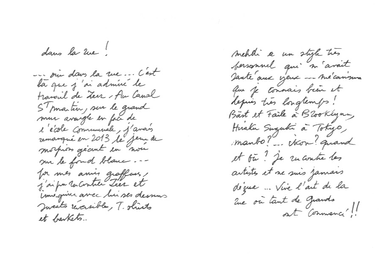 dans la rue !
--- oui dans la rue... C'est
là que j'ai admiré le
travail de Zeer - Au Canal
St Martin, sur le grand
mur aveugle en face de
l'école Communale, j'avais
remarqué en 2013 le jeu de
morpion géant en noir
sur le fond blanc...
par mes amis graffeurs,
j'ai pu rencontrer Zeer et
imaginer avec lui ses dessins
sweats T. shirts
et baskets..
mehdi a un style très
personnel qui m'avait
sauté aux yeux --- mécanisme
que je connais bien et
depuis très longtemps !
Bäst et Faile à Brooklyn,
à Tokyo,
nambo! ... quand
et où ? Je rencontre les
artistes et ne suis jamais
déçue ... Vive l'art de la
rue où tant de grands
ont commencé !!